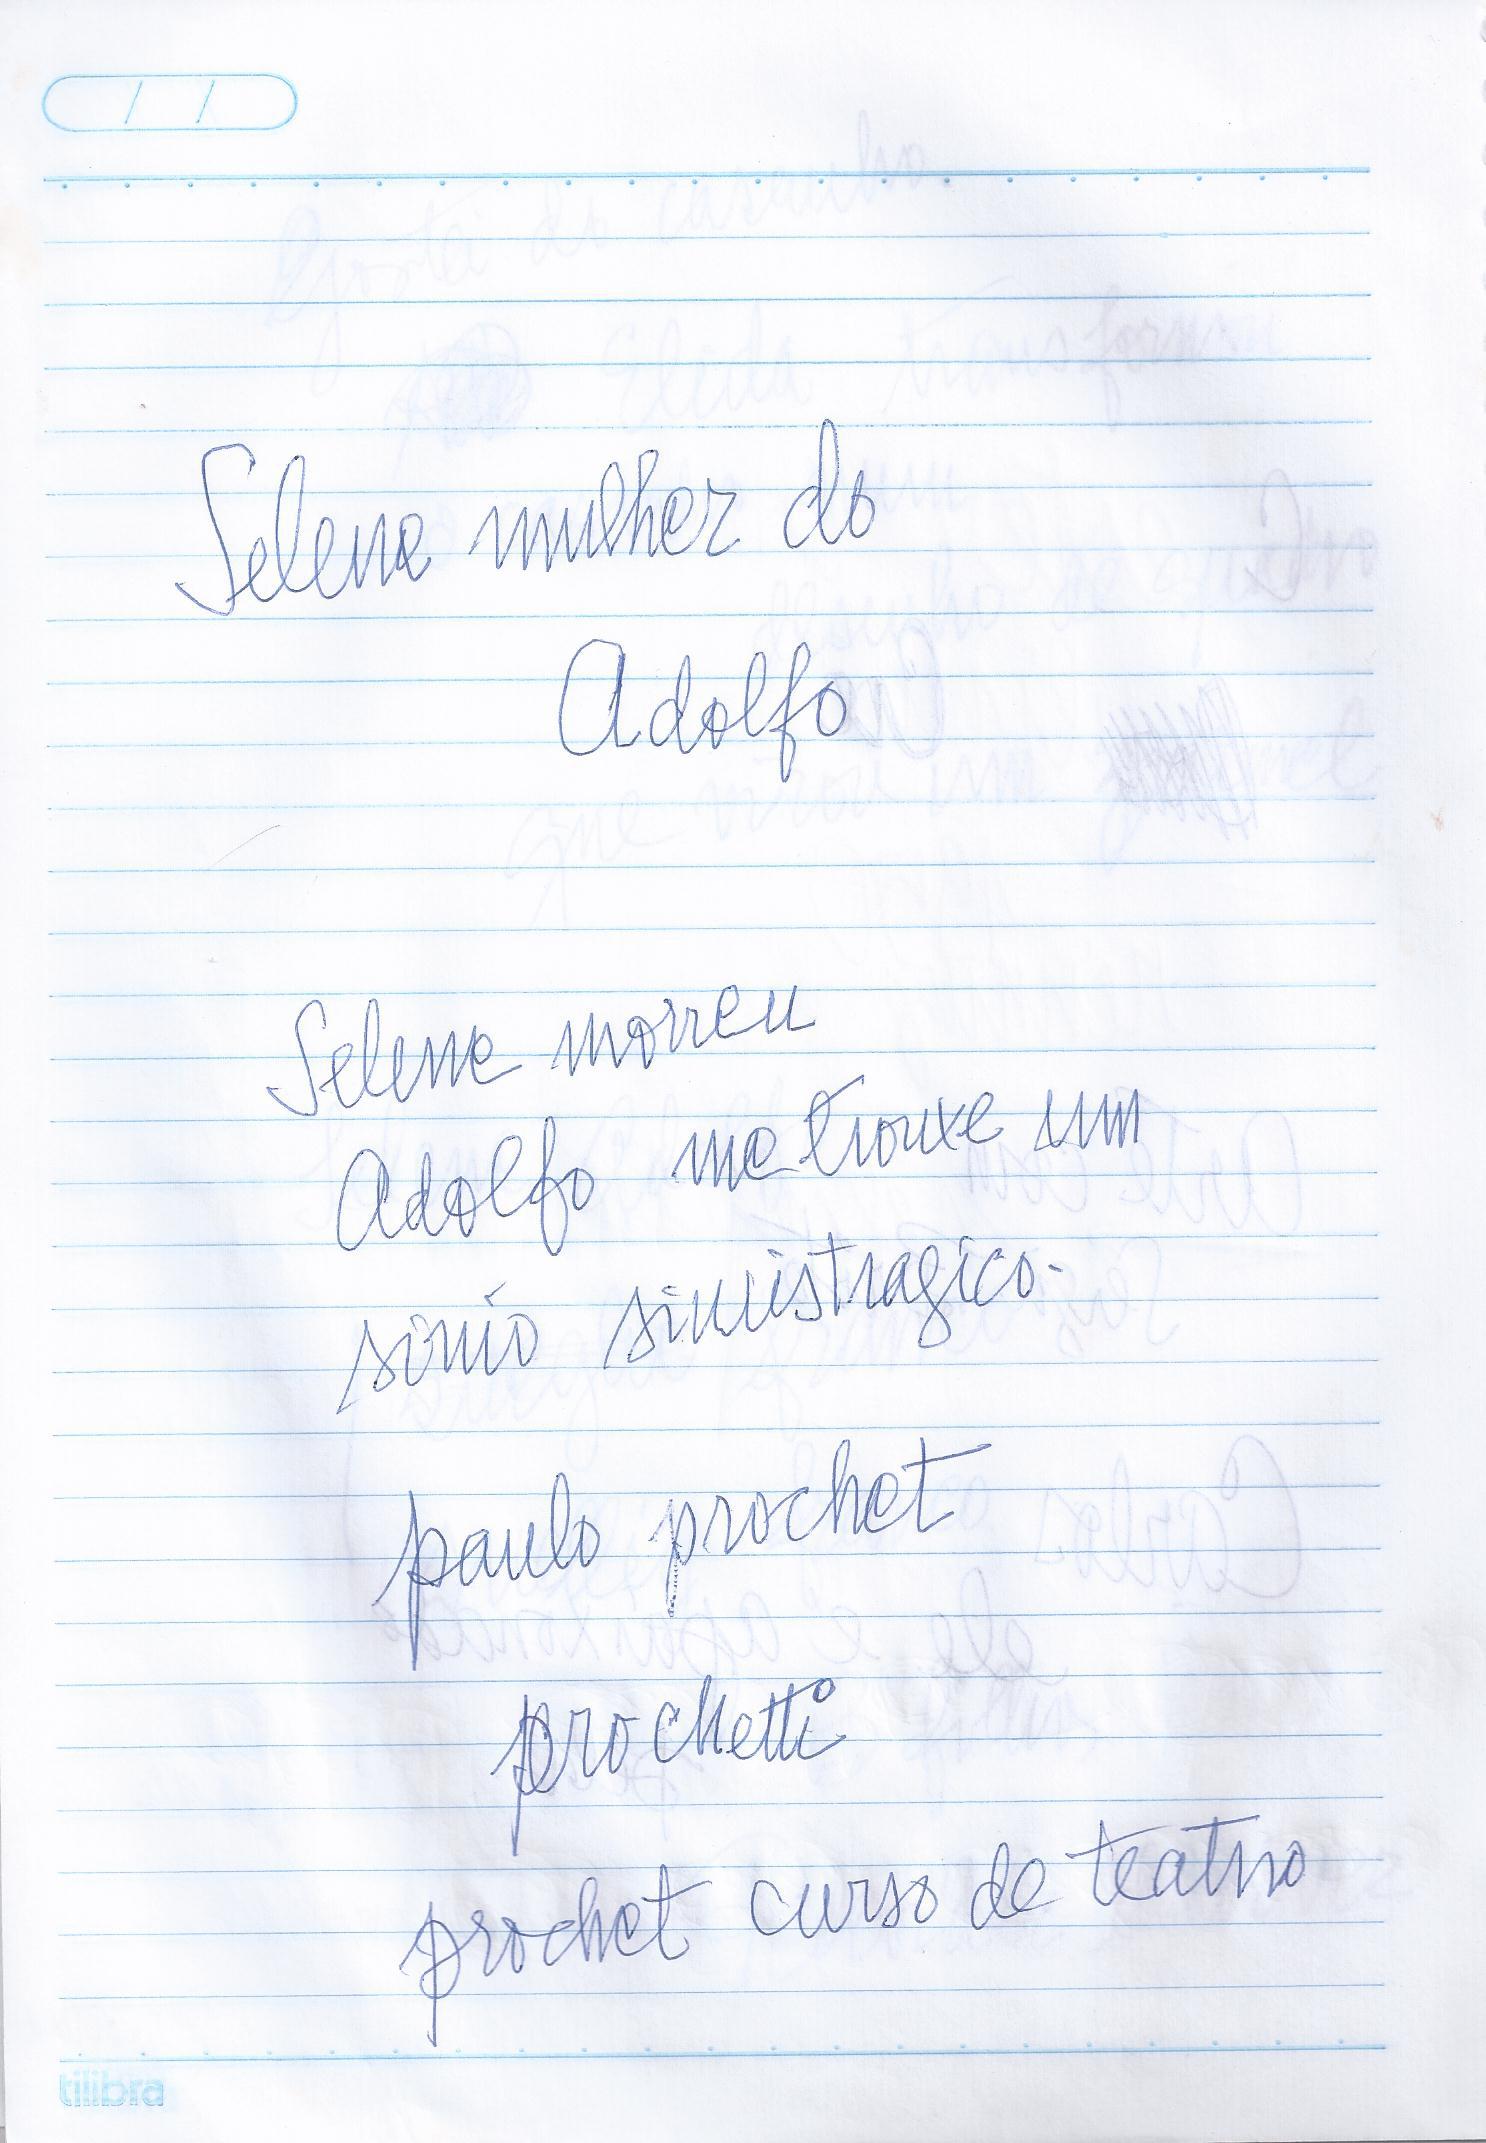 Selene mulher do
Adolfo
Selene morreu
Adolfo me trouxe um
sinistragico.
paulo prochet
prochetti
prochet curso de teatro
tilibra